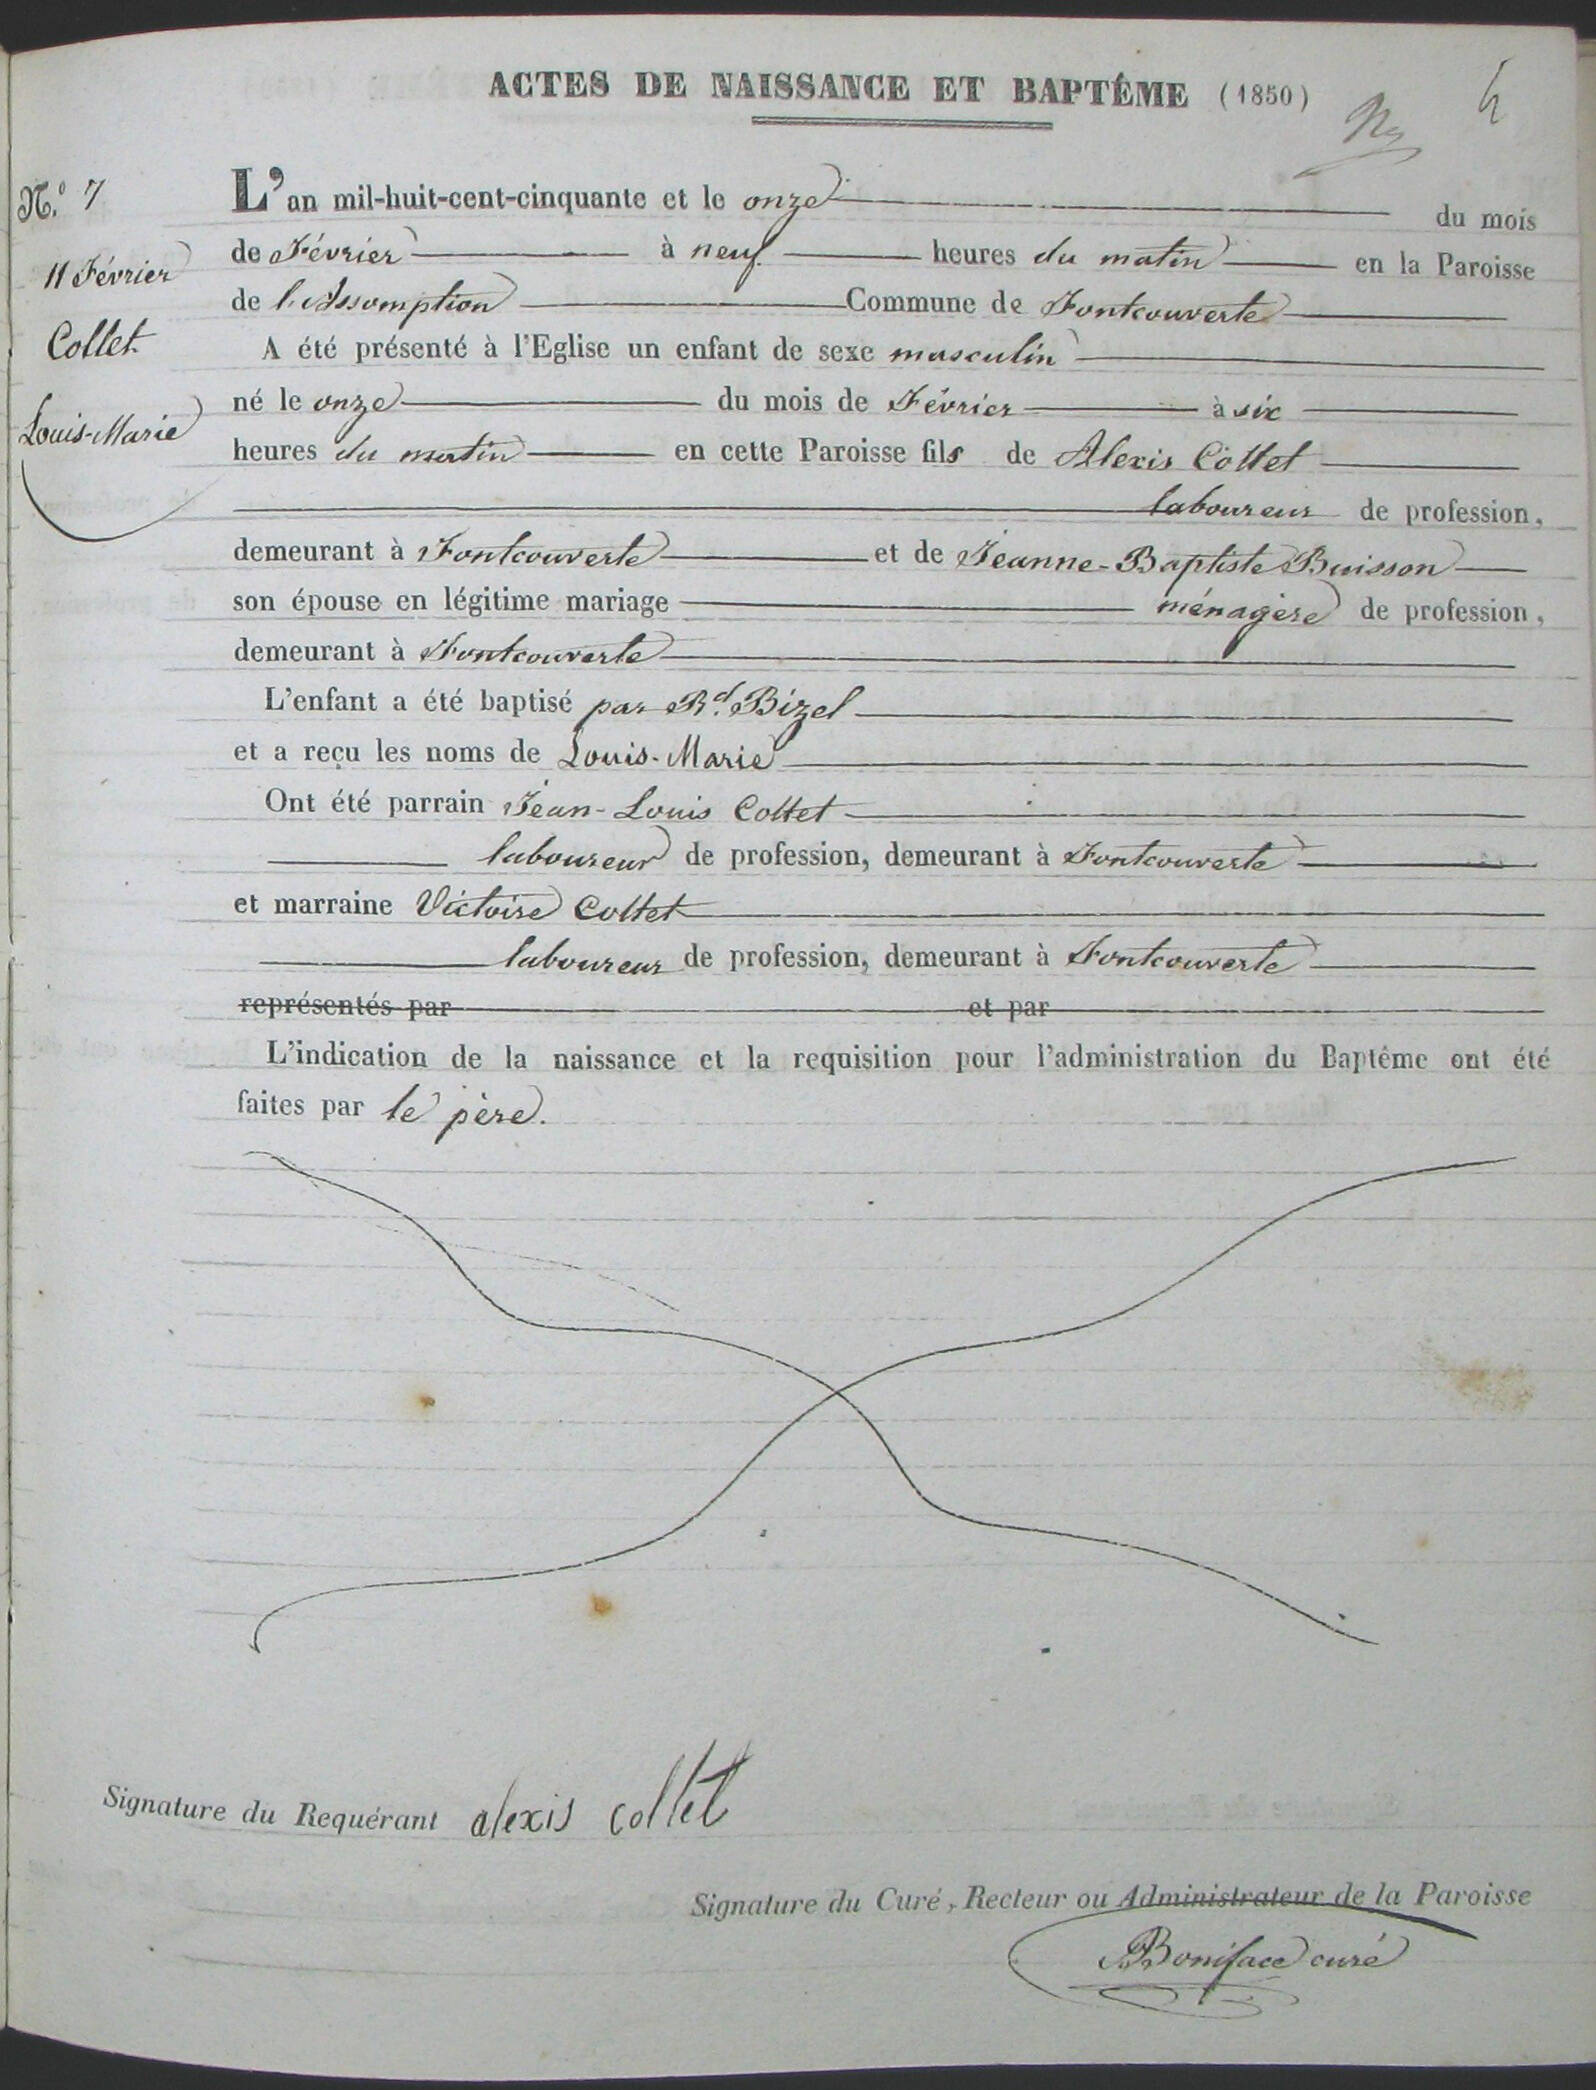 ACTES DE NAISSANCE ET BAPTÊME (1850)
4
N.° 7
11 Février
Collet
Louis-Marie
L'an mil-huit-cent-cinquante et le onze du mois
de Février à neuf heures du matin en la Paroisse
de l'Assomption Commune de Fontcouverte
A été présenté à l'Eglise un enfant de sexe masculin
né le onze du mois de Février à six
heures du matin en cette Paroisse fils de Alexis Collet
laboureur de profession,
demeurant à Fontcouverte et de Jeanne-Baptiste Buisson
son épouse en légitime mariage ménagère de profession,
demeurant à Fontcouverte
L'enfant a été baptisé par Rd. Bizel
et a reçu les noms de Louis-Marie
Ont été parrain Jean-Louis Collet
laboureur de profession, demeurant à Fontcouverte
et marraine Victoire Collet
laboureur de profession, demeurant à Fontcouverte
représentés par et par
L'indication de la naissance et la requisition pour l'administration du Baptême ont été
faites par le père.
Signature du Requérant alexis collet
Signature du Curé, Recteur ou Administrateur de la Paroisse
Boniface curé